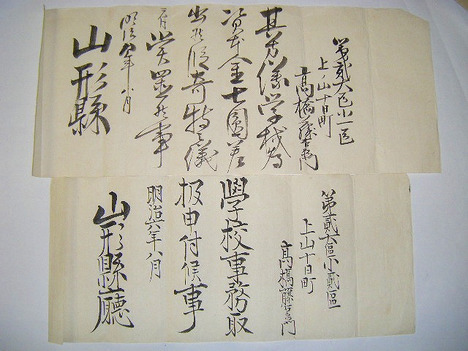 第貮大区小一区
上ノ山十日町
高橋藤右衛門
其方儀学校為
資本金七圓差
出候段奇特之儀
賞置候事
明治年八月
山形縣
第貮大區小貮區
上山十日町
高橋藤右衛門
學校事務取
扱申付候事
明治六年八月
山形縣廳